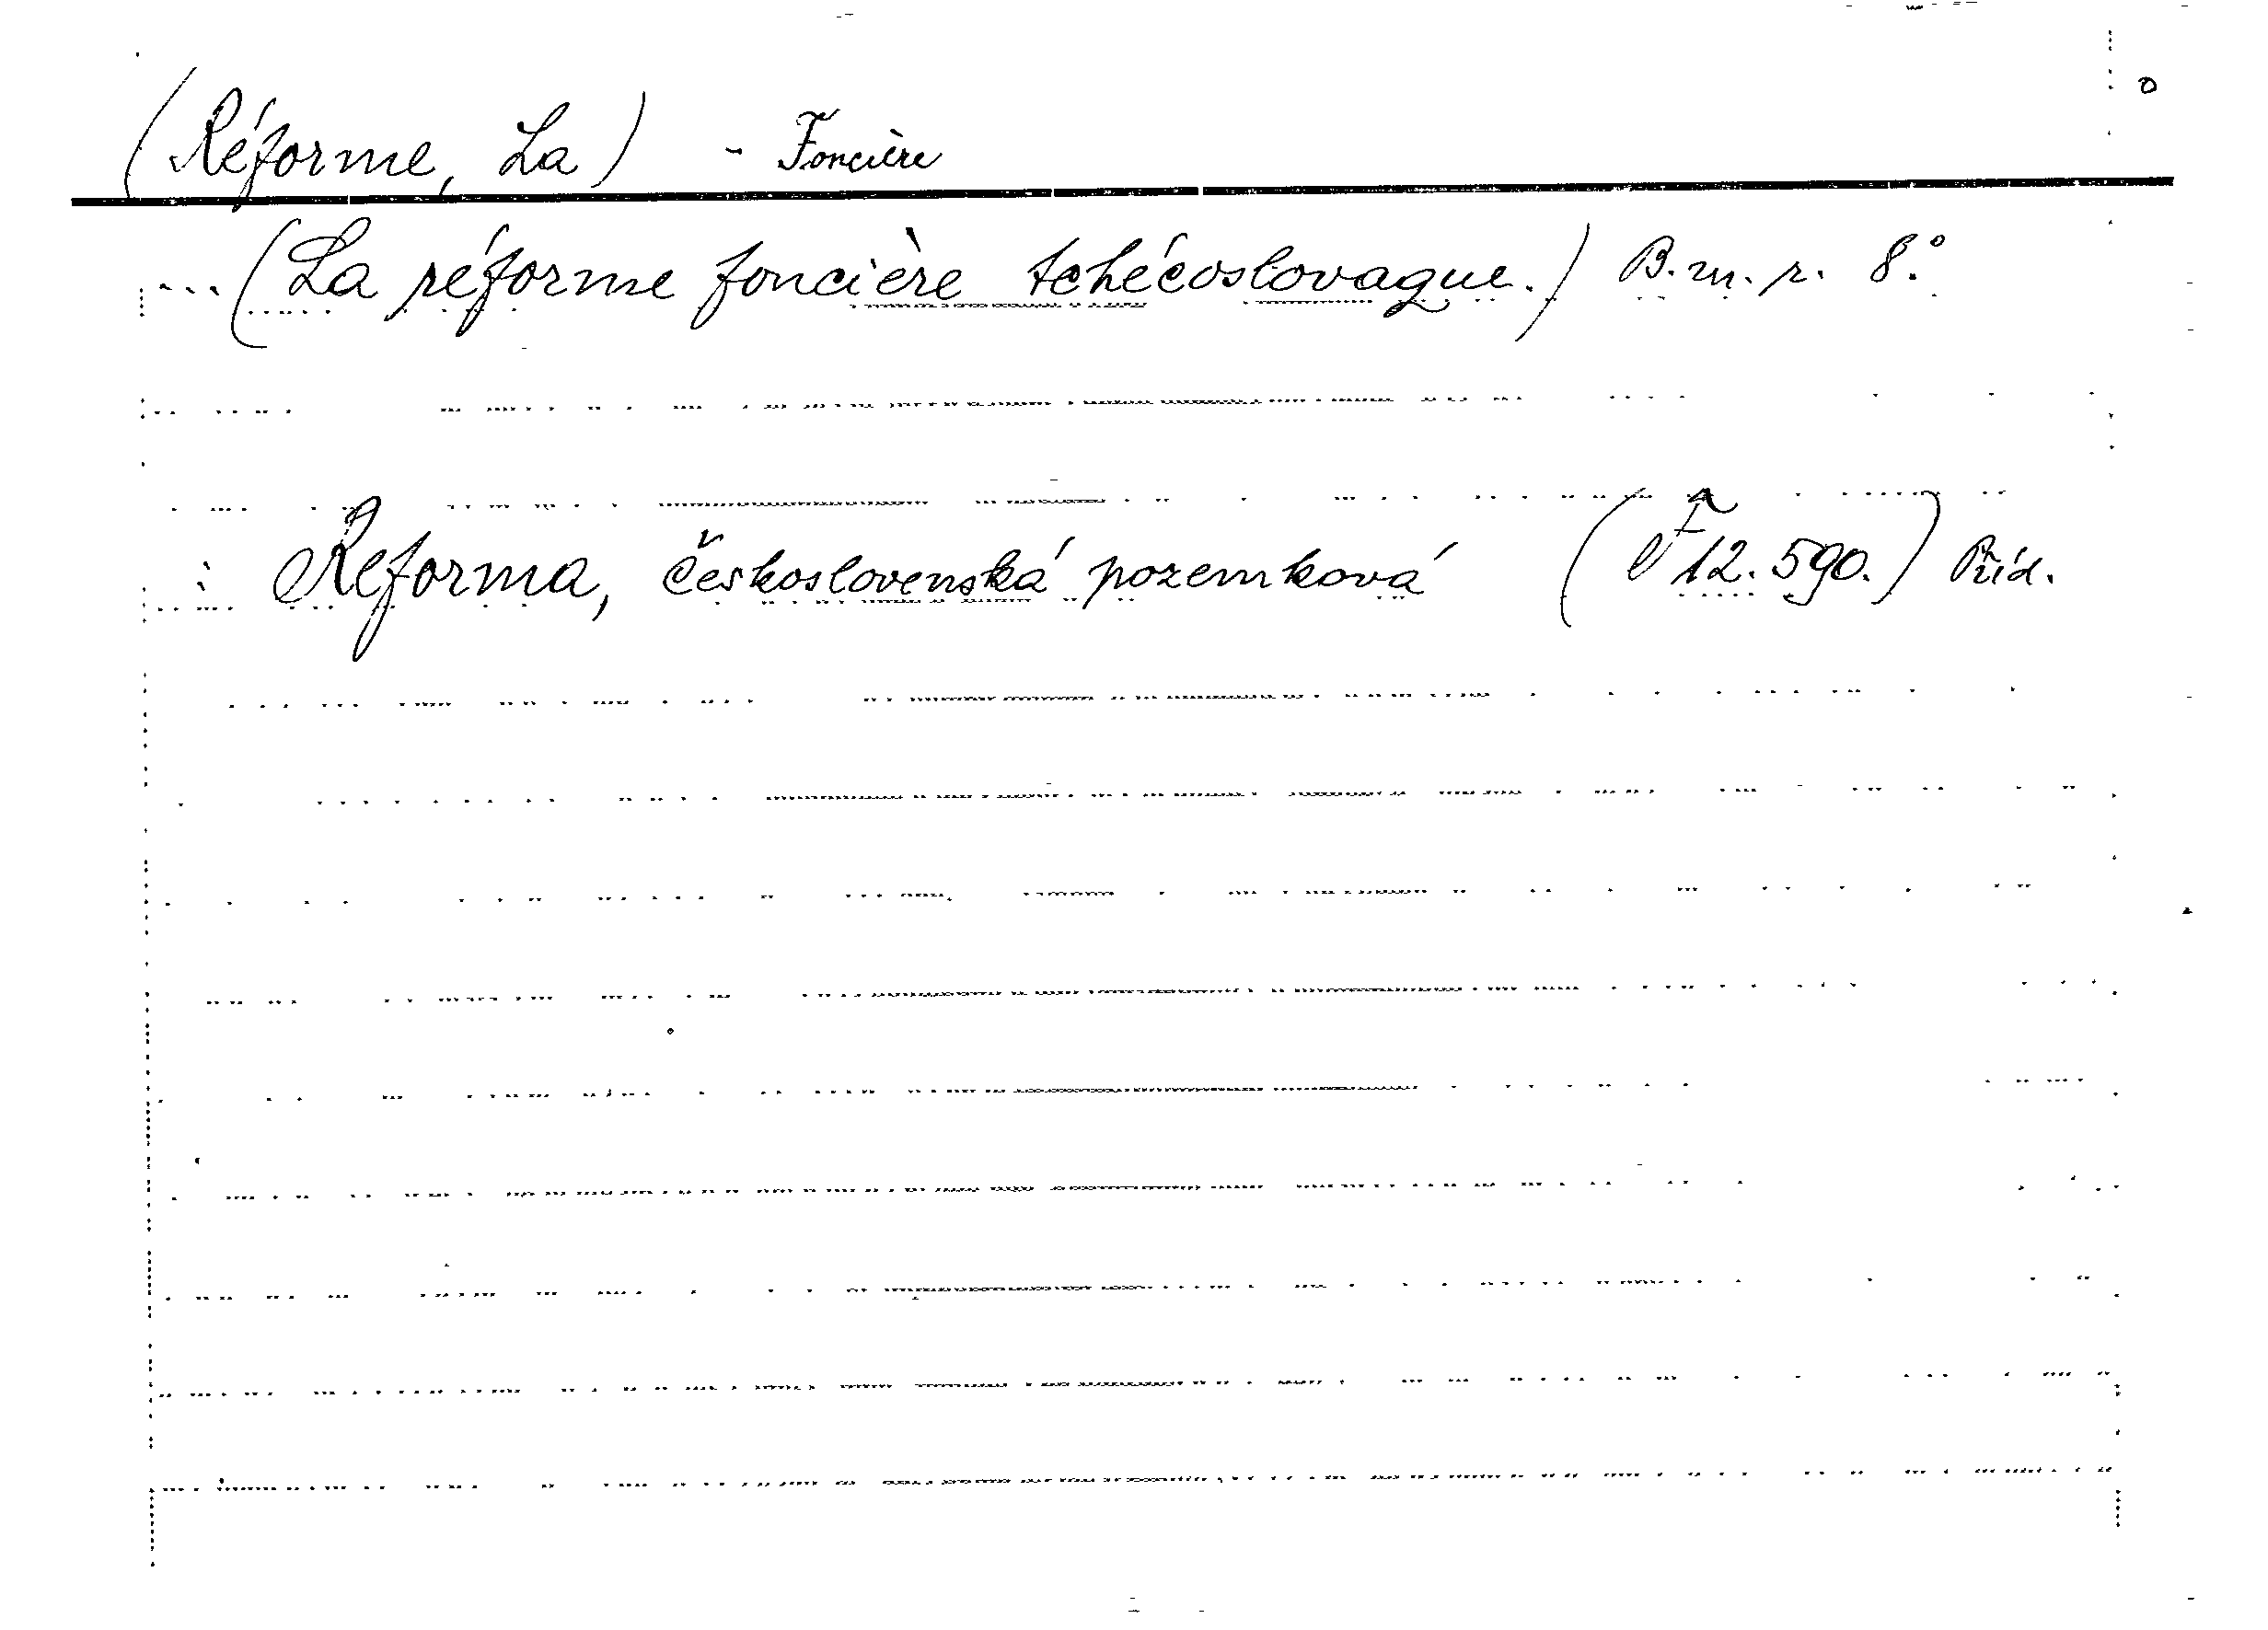 (Réforme, La) - Foncière
(La réforme foncière tchécoslovaque.) B.m.r. 8.°
: Reforma, československá pozemková (F 12.590.) Příd.